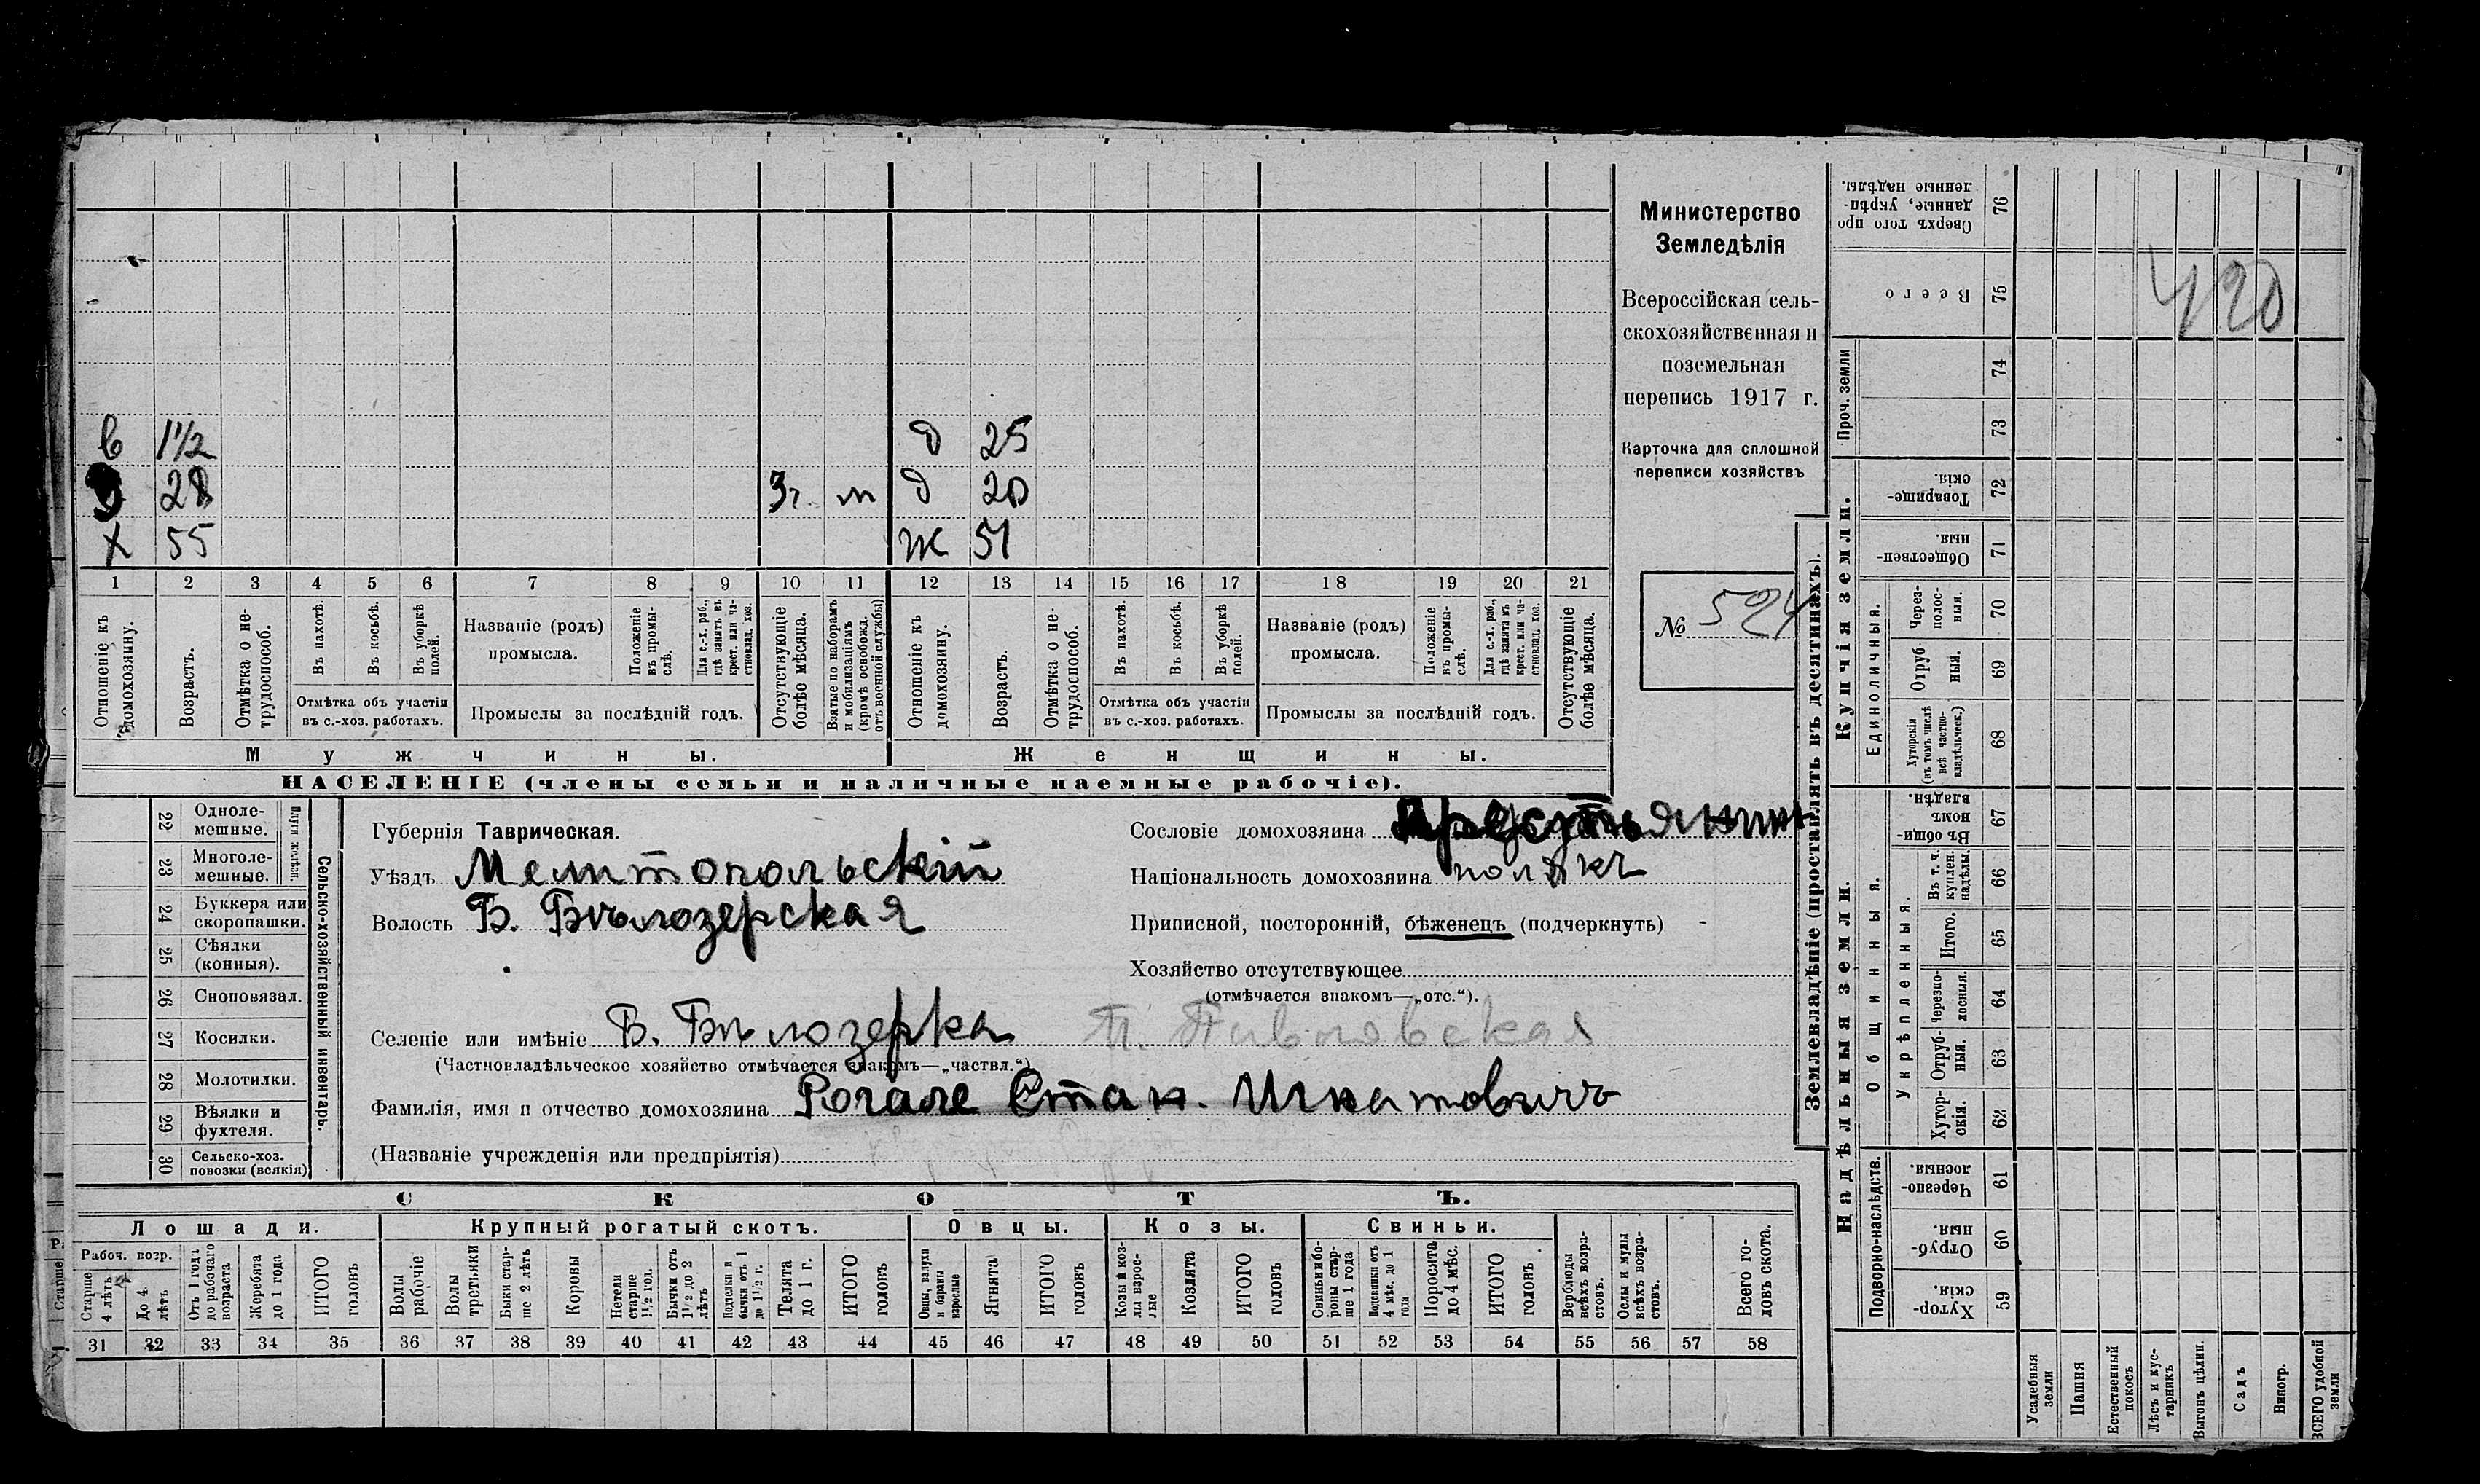 в 1½ д 25
28 3 г. м д 20
х 55 ж 51
1 2 3 4 5 6 7 8 9 10 11 12 13 14 15 16 17 18 19 20 21
Отношеніе къ домохозяину.
Возрастъ.
Отмѣтка о нетрудоспособ.
Въ пахотѣ.
Въ косьбѣ.
Въ уборкѣ полей.
Отмѣтка объ участіи
въ с.-хоз. работахъ.
Названіе (родъ)
промысла.
Положеніе въ промыслѣ.
Для с.-х. раб., гдѣ занятъ въ крест. или частновлад. хоз.
Промыслы за послѣдній годъ.
Отсутствующіе болѣе мѣсяца.
Взятые по наборамъ и мобилизаціямъ (кромѣ освобожд. отъ военной службы)
Отношеніе къ домохозяину.
Возрастъ.
Отмѣтка о нетрудоспособ.
Въ пахотѣ.
Въ косьбѣ.
Въ уборкѣ полей.
Отмѣтка объ участіи
въ с.-хоз. работахъ.
Названіе (родъ)
промысла.
Положеніе въ промыслѣ.
Для с.-х. раб., гдѣ занята въ крест. или частновлад. хоз.
Промыслы за послѣдній годъ.
Отсутствующіе болѣе мѣсяца.
Мужчины. Женщины.
НАСЕЛЕНІЕ (члены семьи и наличные наемные рабочіе).
Министерство
Земледѣлія
Всероссійская сель-
скохозяйственная и
поземельная
перепись 1917 г.
Карточка для сплошной
переписи хозяйствъ
№ 524
22 Одноле-
мешные.
23 Многоле-
мешные.
Плуги желѣзн.
24 Буккера или
скоропашки.
25 Сѣялки
(конныя).
26 Сноповязал.
27 Косилки.
28 Молотилки.
29 Вѣялки и
фухтеля.
30 Сельско-хоз.
повозки (всякія)
Сельско-хозяйственный инвентарь.
Губернія Таврическая.
Уѣздъ Мелитопольскій
Волость Б. Бѣлозерская
Сословіе домохозяина крестьянинъ
Національность домохозяина полякъ
Приписной, посторонній, бѣженецъ (подчеркнуть)
Хозяйство отсутствующее
(отмѣчается знакомъ—„отс.“).
Селеніе или имѣніе В. Бѣлозерка
(Частновладѣльческое хозяйство отмѣчается знакомъ—„частвл.“)
Фамилія, имя и отчество домохозяина Рогале Стан. Игнатовичъ
(Названіе учрежденія или предпріятія)
СКОТЪ.
Лошади. Крупный рогатый скотъ. Овцы. Козы. Свиньи.
Рабоч. возр.
Старше 4 лѣтъ
До 4 лѣтъ
Отъ 1 года до рабочаго возраста
Жеребята до 1 года
ИТОГО головъ
Волы рабочіе
Волы третьяки
Быки старше 2 лѣтъ
Коровы
Нетели старше 1½ год.
Бычки отъ 1½ до 2 лѣтъ
Подтелки и бычки отъ 1 до 1½ г.
Телята до 1 г.
ИТОГО головъ
Овцы, валухи и бараны взрослые
Ягнята
ИТОГО головъ
Козы и козлы взрослые
Козлята
ИТОГО головъ
Свиньи и боровы старше 1 года
Подсвинки отъ 4 мѣс. до 1 года
Поросята до 4 мѣс.
ИТОГО головъ
Верблюды всѣхъ возрастовъ.
Ослы и мулы всѣхъ возрастовъ.
Всего головъ скота.
31 32 33 34 35 36 37 38 39 40 41 42 43 44 45 46 47 48 49 50 51 52 53 54 55 56 57 58
Землевладѣніе (проставлять въ десятинахъ).
Сверхъ того проданные, укрѣпленные надѣлы. 76
Всего 75
420
Проч. земли
74
73
Купчія земли.
Товарищескія. 72
Общественныя. 71
Единоличныя.
Черезполосныя. 70
Отрубныя. 69
Хуторскія (въ томъ числѣ всѣ частновладѣльческ.) 68
Надѣльныя земли.
Общинныя.
Въ общинномъ владѣн. 67
Укрѣпленныя.
Въ т. ч. куплен. надѣлы. 66
Итого. 65
Черезполосныя. 64
Отрубныя. 63
Хуторскія. 62
Подворно-наслѣдств.
Черезполосныя. 61
Отрубныя. 60
Хуторскія. 59
Усадебныя земли
Пашня
Естественный покосъ
Лѣсъ и кустарникъ
Выгонъ цѣлин.
Садъ
Виногр.
ВСЕГО удобной земли